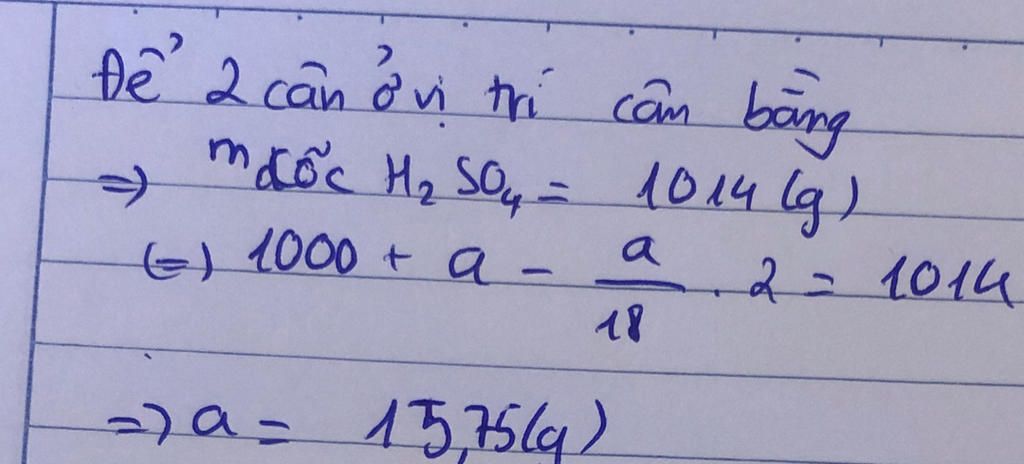 Để 2 cân ở vị trí cân bằng
=> m cốc H₂SO₄ = 1014 (g)
(=) 1000 + a - a/18 . 2 = 1014
=> a = 15,75 (g)